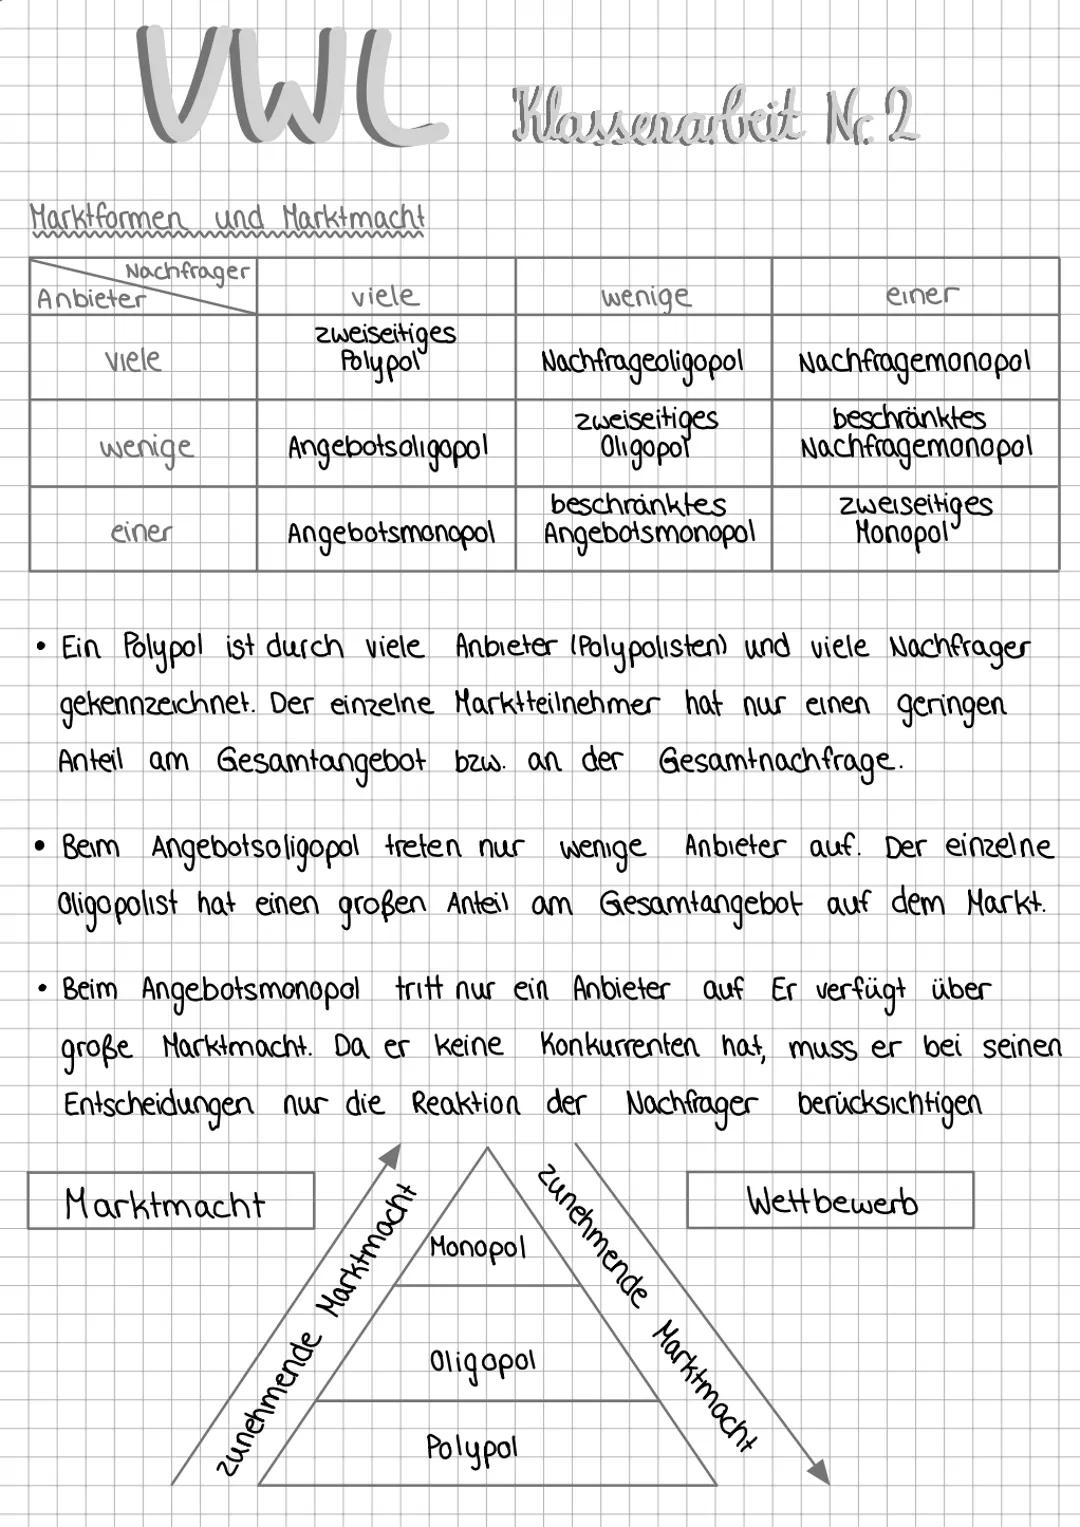 VWL Klassenarbeit Nr. 2
Marktformen und Marktmacht
Nachfrager
Anbieter
viele
wenige
einer
viele
zweiseitiges
Polypol
Nachfrageoligopol
Nachfragemonopol
wenige
Angebotsoligopol
zweiseitiges
Oligopol
beschränktes
Nachfragemonopol
einer
Angebotsmonopol
beschränktes
Angebotsmonopol
zweiseitiges
Monopol
• Ein Polypol ist durch viele Anbieter (Polypolisten) und viele Nachfrager
gekennzeichnet. Der einzelne Marktteilnehmer hat nur einen geringen
Anteil am Gesamtangebot bzw. an der Gesamtnachfrage.
• Beim Angebotsoligopol treten nur wenige Anbieter auf. Der einzelne
Oligopolist hat einen großen Anteil am Gesamtangebot auf dem Markt.
• Beim Angebotsmonopol tritt nur ein Anbieter auf Er verfügt über
große Marktmacht. Da er keine Konkurrenten hat, muss er bei seinen
Entscheidungen nur die Reaktion der Nachfrager berücksichtigen
Marktmacht
zunehmende Marktmacht
Monopol
Oligopol
Polypol
zunehmende Marktmacht
Wettbewerb